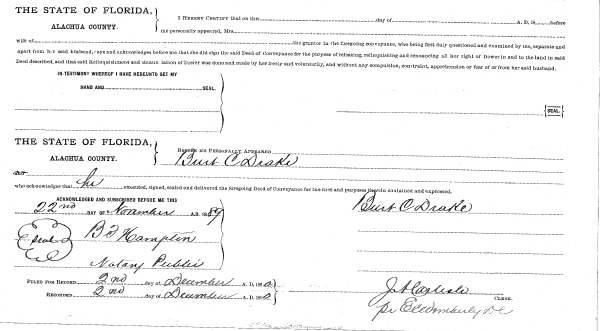 THE STATE OF FLORIDA,
ALACHUA COUNTY.
I HEREBY CERTIFY that on this day of A. D. 18 before
me personally appeared, Mrs.
wife of the grantor in the foregoing conveyance, who being first duly questioned and examined by me, separate and
apart from her said husband, says and acknowledges before me that she did sign the said Deed of Conveyance for the purpose of releasing, relinquishing and renouncing all her right of Dower in and to the land in said
Deed described, and that said Relinquishment and Renunciation of Dower was done and made by her freely and voluntarily, and without any compulsion, constraint, apprehension or fear of or from her said husband.
IN TESTIMONY WHEREOF I HAVE HEREUNTO SET MY
HAND AND SEAL.
SEAL.
THE STATE OF FLORIDA,
ALACHUA COUNTY.
BEFORE ME PERSONALLY APPEARED
Burt C Drake
who acknowledges that he executed, signed, sealed and delivered the foregoing Deed of Conveyance for the uses and purposes therein contained and expressed.
ACKNOWLEDGED AND SUBSCRIBED BEFORE ME THIS
22nd DAY OF November A.D. 1889
Burt C Drake
Seal
B F Hampton
Notary Public
FILED FOR RECORD 2nd day of December A. D. 18
RECORDED 2nd day of December A. D. 18
J A Carlisle CLERK.
pr E C Womberly DC